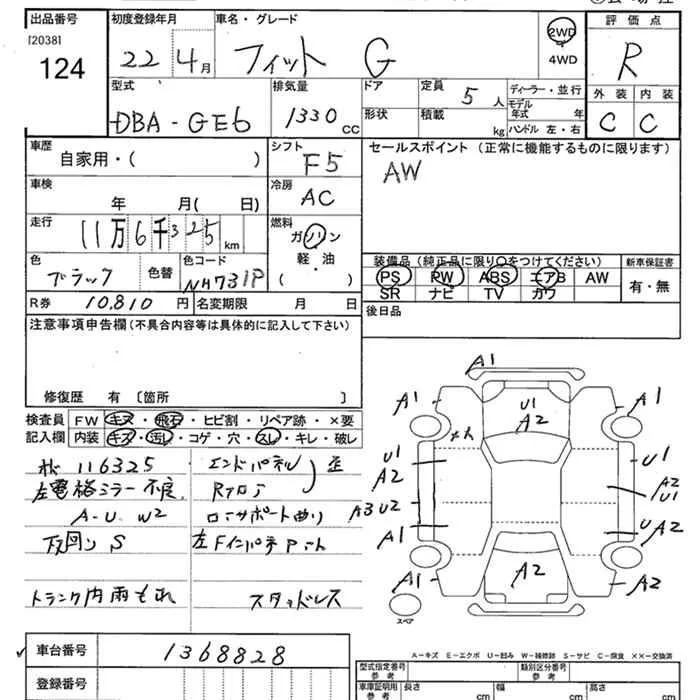 出品番号
[2038]
124
初度登録年月
22年 4月
車名・グレード
フィット G
2WD
4WD
評価点
R
型式
DBA-GE6
排気量
1330 CC
ドア
形状
定員 5人
積載 kg
ディーラー・並行
モデル年式 年
ハンドル 左・右
外装 内装
C C
車歴
自家用・( )
シフト
F5
セールスポイント (正常に機能するものに限ります)
AW
車検
年 月( 日)
冷房
AC
走行
11万6千325 km
燃料
ガソリン
軽・油
( )
色
ブラック
色替
色コード
NH731P
装備品 (純正品に限り○をつけてください)
PS PW ABS エアB AW
SR ナビ TV カワ
新車保証書
有・無
R券 10,810 円
名変期限 月 日
後日品
注意事項申告欄 (不具合内容等は具体的に記入して下さい)
修復歴 有 〔箇所 〕
検査員 FW キズ・飛石・ヒビ割・リペア跡・×要
記入欄 内装 キズ・汚レ・コゲ・穴・スレ・キレ・破レ
116325
エンドパネル 歪
左電格ミラー不良
Rフロア
A-U W2
コーサポート曲り
下回り S
左Fインパネ
トランク内雨もれ
スタッドレス
A1
A1 A1
U1
A2
U1 U1
A2 A2
U1
A3 U2
A1 U A2
A1 A2 A2
スペア
A-キズ E-エクボ U-凹み W-補修跡 S-サビ C-腐食 ××-交換済
車台番号 1368828
登録番号
型式指定番号 参考
類別区分番号 参考
車庫証明用 参考
長さ cm
幅 cm
高さ cm